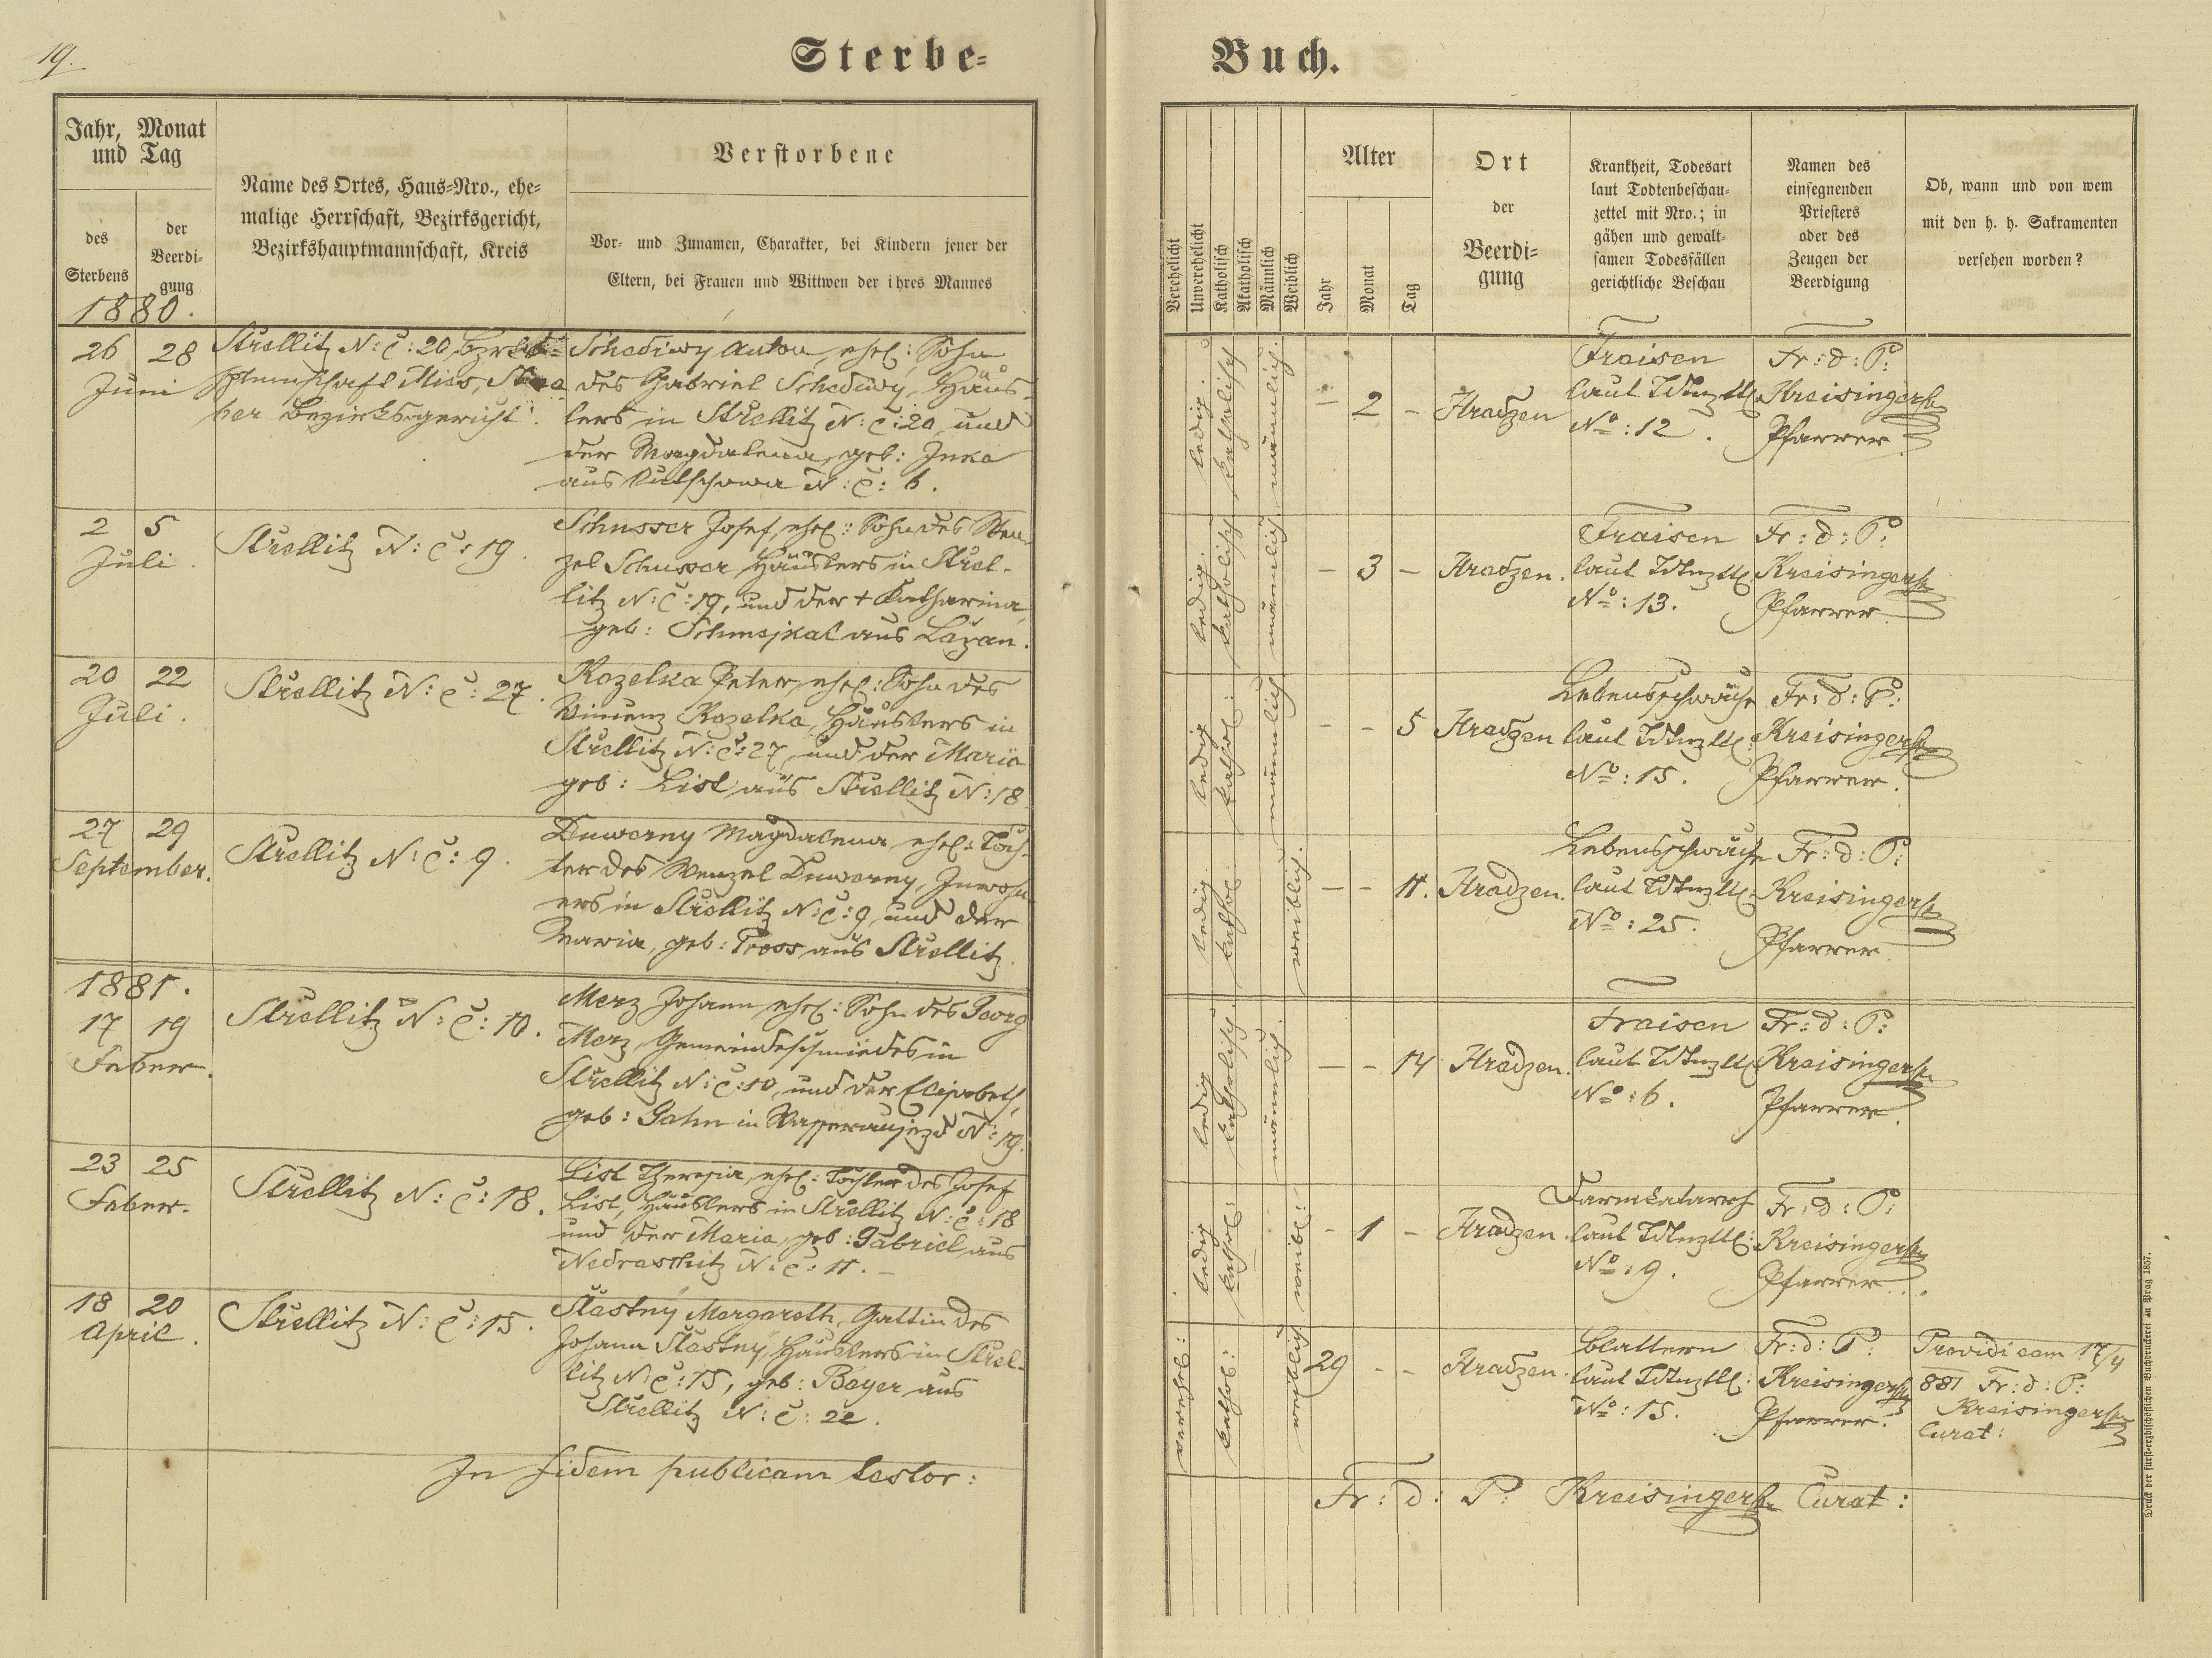 19.
Sterbe-
Buch.
Jahr, Monat
und Tag
des
Sterbens
der
Beerdi-
gung
Name des Ortes, Haus-Nro., ehe-
malige Herrschaft, Bezirksgericht,
Bezirkshauptmannschaft, Kreis
Verstorbene
Vor- und Zunamen, Charakter, bei Kindern jener der
Eltern, bei Frauen und Wittwen der ihres Mannes
Verehelicht
Unverehelicht
Katholisch
Akatholisch
Männlich
Weiblich
Alter
Jahr
Monat
Tag
Ort
der
Beerdi-
gung
Krankheit, Todesart
laut Todtenbeschau-
zettel mit Nro.; in
gähen und gewalt-
samen Todesfällen
gerichtliche Beschau
Namen des
einsegnenden
Priesters
oder des
Zeugen der
Beerdigung
Ob, wann und von wem
mit den h. h. Sakramenten
versehen worden?
1880.
26 28
Juni
Strellitz N: C: 20,
Mies,
Bezirksgericht.
Schediwy Anton, ehel: Sohn
des Gabriel Schediwy, Häus-
lers in Strellitz N: C: 20, und
der Magdalena, geb: Inka
aus N: C: 6.
ledig.
katholisch
männlich.
- 2 -
Hradzen
Fraisen
laut
No: 12.
Fr: d: P:
Kreisinger
Pfarrer
2 5
Juli.
Strellitz N: C: 19.
Schusser Josef, ehel: Sohn des Wen-
zel Schusser Häuslers in Strel-
litz N: C: 19, und der + Katharina,
geb: Schmejkal aus Lozan.
ledig.
katholisch
männlich
- 3 -
Hradzen.
Fraisen
laut
No: 13.
Fr: d: P:
Kreisinger
Pfarrer.
20 22
Juli.
Strellitz N: C: 27.
Kozelka Peter, ehel: Sohn des
Vincenz Kozelka, Häuslers in
Strellitz N: C: 27, und der Maria
geb: List aus Strellitz N: 18
ledig
kathol:
männlich
- - 5
Hradzen
Lebensschwäche
laut
No: 15.
Fr: d: P:
Kreisinger
Pfarrer.
27 29
September.
Strellitz N: C: 9.
Duworny Magdalena, ehel: Toch-
ter des Wenzel Duworny, Inwohn-
ers in Strellitz N: C: 9, und der
Maria, geb: Pross aus Strellitz.
ledig.
kathol:
weiblich.
- - 11.
Hradzen.
Lebensschwäche
laut
No: 25.
Fr: d: P:
Kreisinger
Pfarrer
1881.
17 19
Feber.
Strellitz N: C: 10.
Merz Johann, ehel: Sohn des Georg
Merz, Gemeindeschmiedes in
Strellitz N: C: 10, und der Elisabeth,
geb: Gahn in Wasseraujezd N: 19.
ledig
katholisch.
männlich.
- - 14
Hradzen.
Fraisen
laut
No: 6.
Fr: d: P:
Kreisinger
Pfarrer.
23 25
Feber.
Strellitz N: C: 18.
List Theresia, ehel: Tochter des Josef
List, Häuslers in Strellitz N: C: 18
und der Maria, geb: Gabriel aus
Nedraschitz N: C: 11. -
ledig
kathol:
weibl:
- 1 -
Hradzen.
Darmkatarrh
laut
No: 9.
Fr: d: P:
Kreisinger
Pfarrer.
18 20
April.
Strellitz N: C: 15.
Stastný Margareth, Gattin des
Johann Stastný, Häuslers in Strel-
litz N: C: 15, geb: Bayer aus
Strellitz N: C: 22.
verehel:
kathol:
weiblich
29 - -
Hradzen.
Blattern
laut
No: 15.
Fr: d: P:
Kreisinger
Pfarrer.
Providi eam 17/4
881 Fr: d: P:
Kreisinger
Curat:
In fidem publicam testor:
Fr: d: P: Kreisinger Curat:
Druck der fürst-erzbischöflichen Buchdruckerei in Prag 1857.